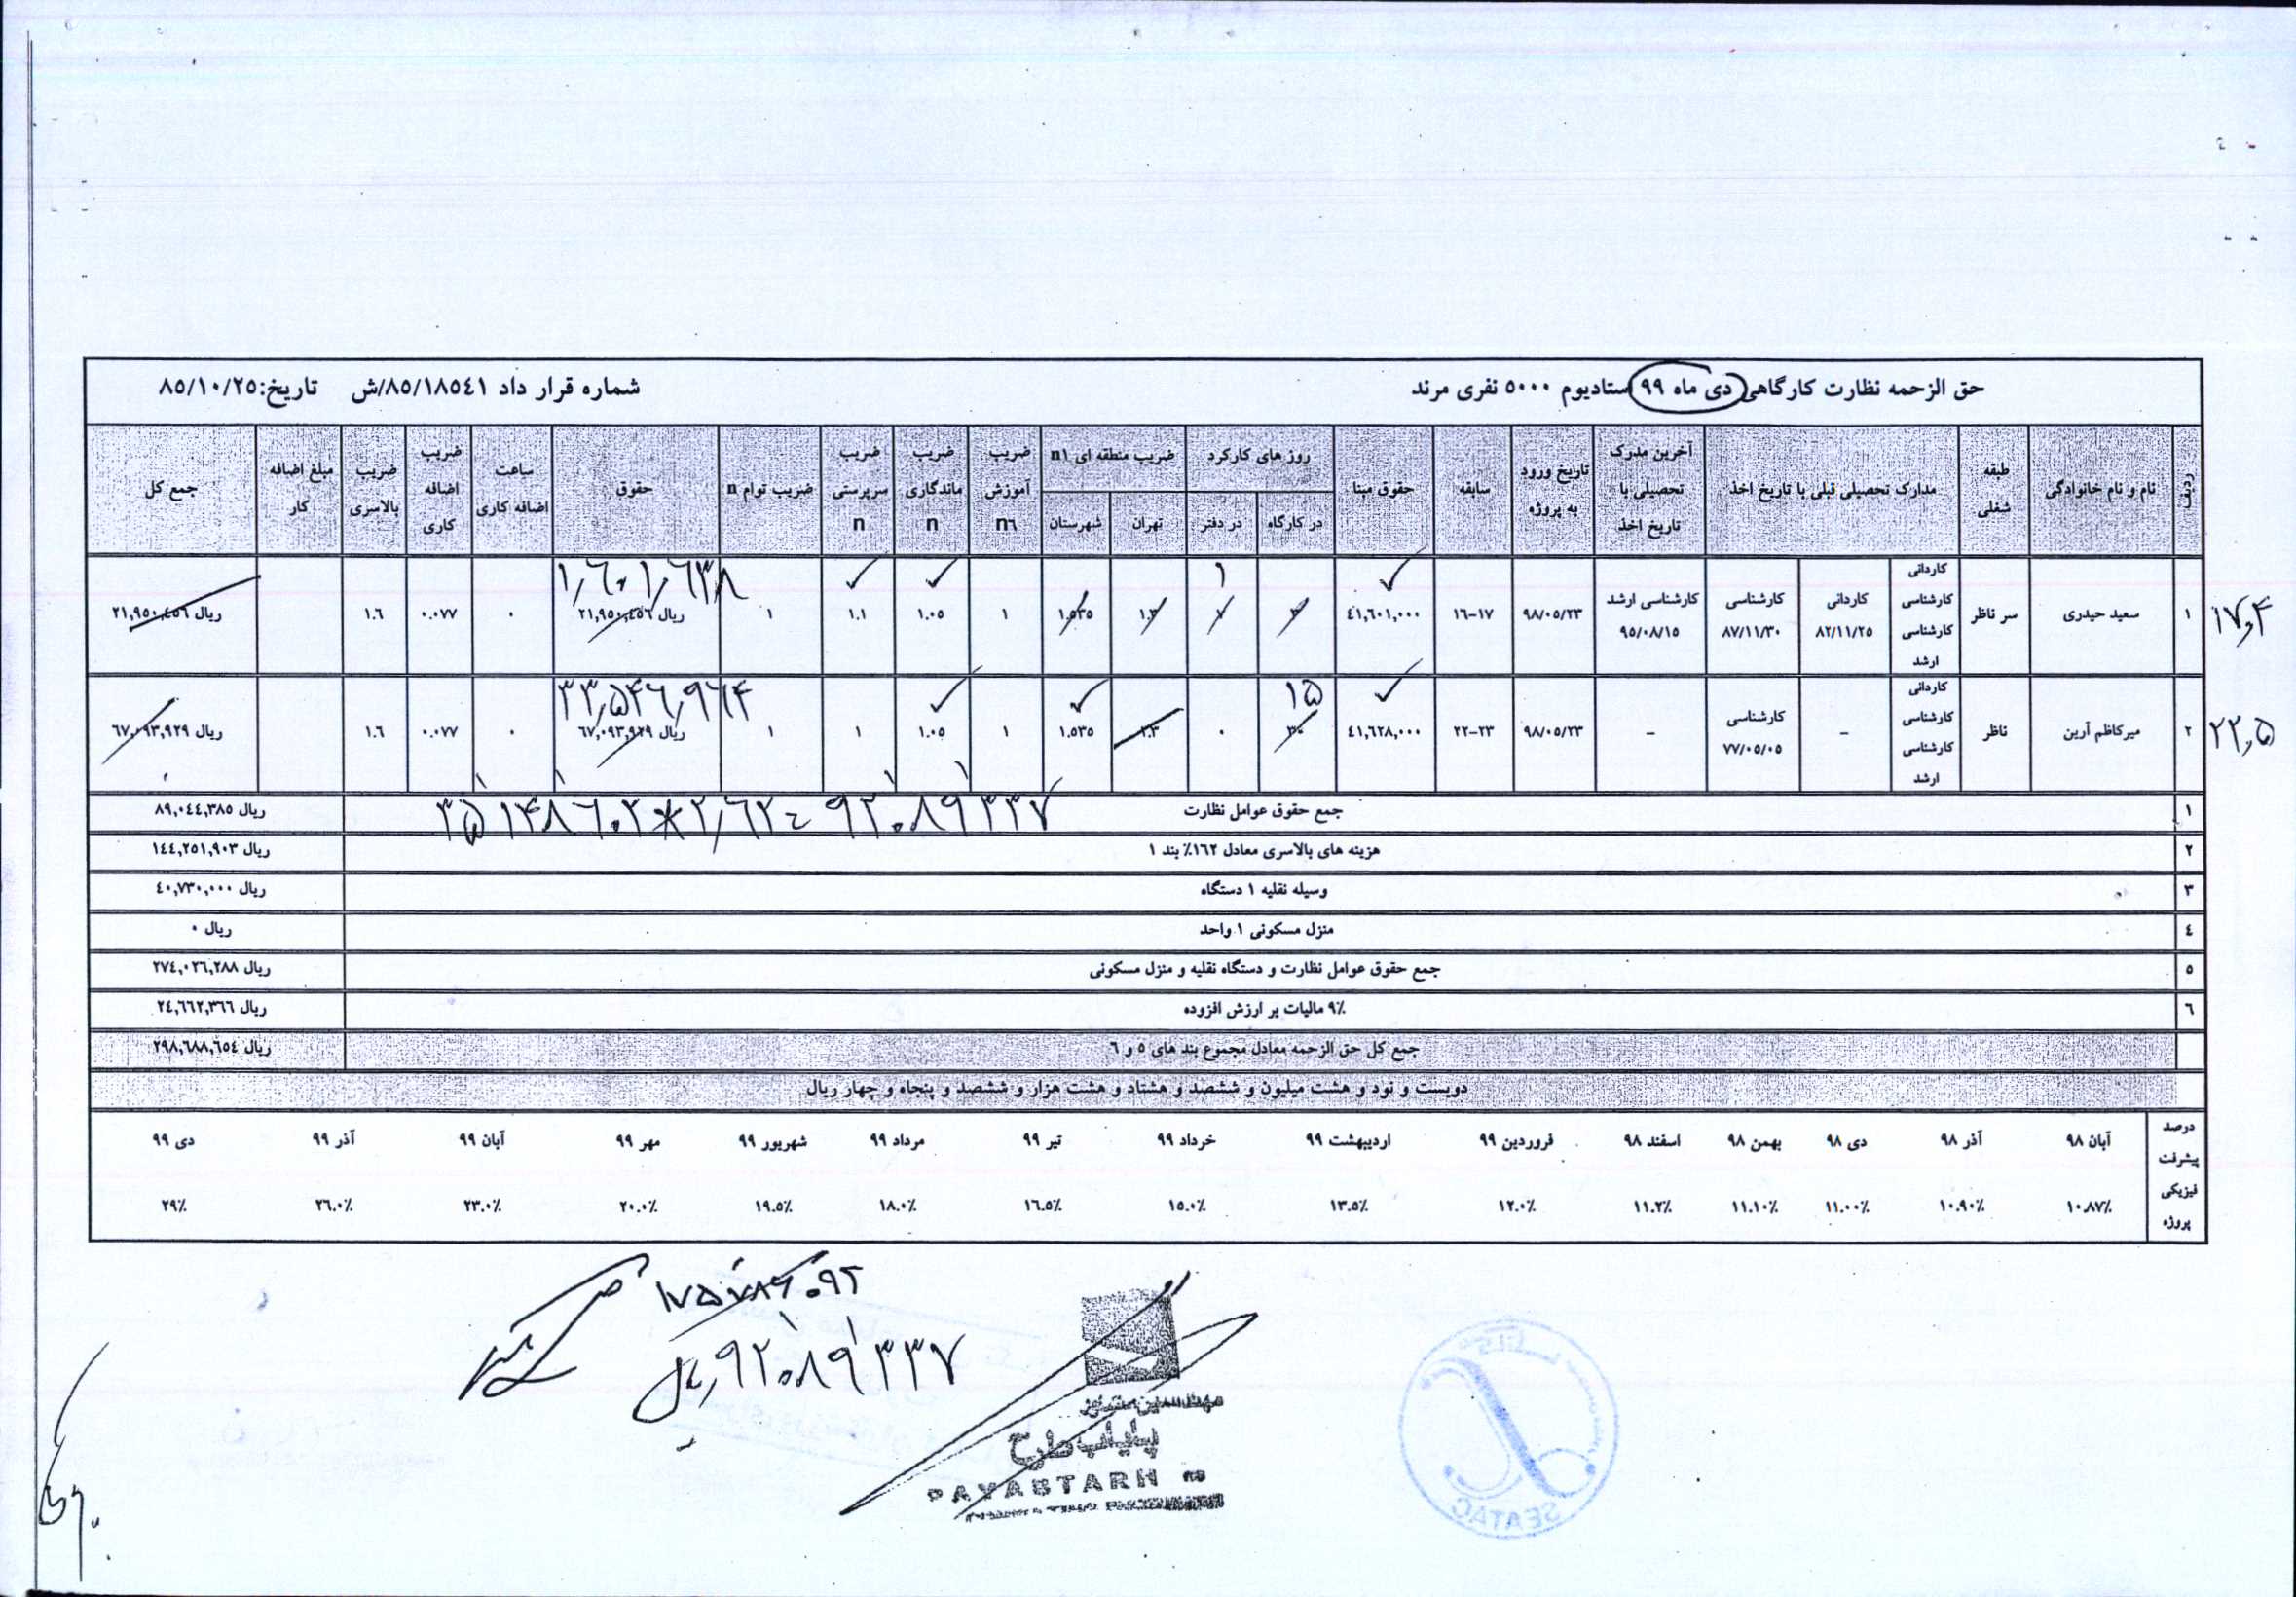 حق الزحمه نظارت کارگاهی دی ماه ۹۹ ستادیوم ۵۰۰۰ نفری مرند
شماره قرار داد ۸۵/۱۸۵٤۱/ش تاریخ:۸۵/۱۰/۲۵
ردیف نام و نام خانوادگی طبقه شغلی مدارک تحصیلی قبلی با تاریخ اخذ آخرین مدرک تحصیلی با تاریخ اخذ تاریخ ورود به پروژه سابقه حقوق مبنا روز های کارکرد ضریب منطقه ای n۱ ضریب آموزش n٦ ضریب ماندگاری n ضریب سرپرستی n ضریب توام n حقوق ساعت اضافه کاری ضریب اضافه کاری ضریب بالاسری مبلغ اضافه کار جمع کل
در کارگاه در دفتر تهران شهرستان
۱ ۱٫٦۰۱٫٦۳۸
۱۷٫۴ ۱ سعید حیدری سر ناظر کاردانی کارشناسی کارشناسی ارشد کاردانی ۸۲/۱۱/۲۵ کارشناسی ۸۷/۱۱/۳۰ کارشناسی ارشد ۹۵/۰۸/۱۵ ۹۸/۰۵/۲۳ ۱٦-۱۷ ٤۱,٦۰۱,۰۰۰ ۱.۳ ۱.۵۳۵ ۱ ۱.۰۵ ۱.۱ ۱ ریال ۲۱,۹۵۰,٤۵٦ ۰ ۰.۰۷۷ ۱.٦ ریال ۲۱,۹۵۰,٤۵٦
۱۵ ۳۳٫۵۴٦٫۹٦۴
۲۲٫۵ ۲ میرکاظم آرین ناظر کاردانی کارشناسی کارشناسی ارشد - کارشناسی ۷۷/۰۵/۰۵ - ۹۸/۰۵/۲۳ ۲۲-۲۳ ٤۱,٦۲۸,۰۰۰ ۳۰ ۰ ۱.۳ ۱.۵۳۵ ۱ ۱.۰۵ ۱ ۱ ریال ٦۷,۰۹۳,۹۲۹ ۰ ۰.۰۷۷ ۱.٦ ریال ٦۷,۰۹۳,۹۲۹
۱ جمع حقوق عوامل نظارت ۳۵۱۴۸٦۰۲*۲٫٦۲=۹۲۰۸۹۳۳۷ ریال ۸۹,۰٤٤,۳۸۵
۲ هزینه های بالاسری معادل ۱٦۲٪ بند ۱ ریال ۱٤٤,۲۵۱,۹۰۳
۳ وسیله نقلیه ۱ دستگاه ریال ٤۰,۷۳۰,۰۰۰
٤ منزل مسکونی ۱ واحد ریال ۰
۵ جمع حقوق عوامل نظارت و دستگاه نقلیه و منزل مسکونی ریال ۲۷٤,۰۲٦,۲۸۸
٦ ۹٪ مالیات بر ارزش افزوده ریال ۲٤,٦٦۲,۳٦٦
جمع کل حق الزحمه معادل مجموع بند های ۵ و ٦ ریال ۲۹۸,٦۸۸,٦۵٤
دویست و نود و هشت میلیون و ششصد و هشتاد و هشت هزار و ششصد و پنجاه و چهار ریال
درصد پیشرفت فیزیکی پروژه
آبان ۹۸ آذر ۹۸ دی ۹۸ بهمن ۹۸ اسفند ۹۸ فروردین ۹۹ اردیبهشت ۹۹ خرداد ۹۹ تیر ۹۹ مرداد ۹۹ شهریور ۹۹ مهر ۹۹ آبان ۹۹ آذر ۹۹ دی ۹۹
۱۰.۸۷٪ ۱۰.۹۰٪ ۱۱.۰۰٪ ۱۱.۱۰٪ ۱۱.۲٪ ۱۲.۰٪ ۱۳.۵٪ ۱۵.۰٪ ۱٦.۵٪ ۱۸.۰٪ ۱۹.۵٪ ۲۰.۰٪ ۲۳.۰٪ ۲٦.۰٪ ۲۹٪
۹۲٫۰۸۹٫۳۳۷ ریال
مهندسین مشاور
پایاب طرح
PAYABTARH
SEATAC